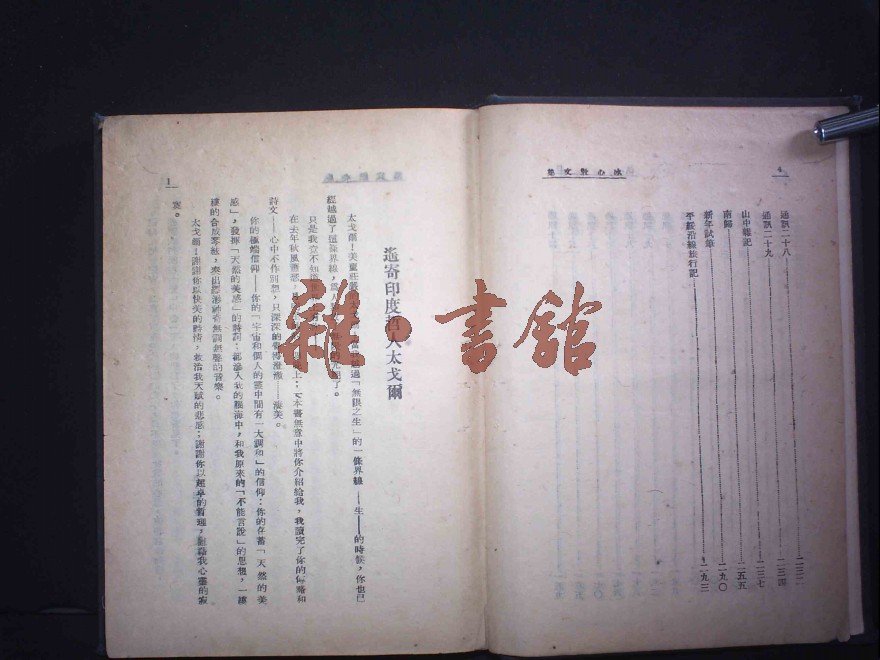 4
冰心散文集
通訊二十八 二三二
通訊二十九 二三四
山中雜記 二三七
南歸 二五五
新年試筆 二九〇
平綏沿線旅行記 二九三
1
遙寄印度哲人太戈爾
太戈爾!美麗莊嚴 「無限之生」的一條界線——生——的時候,你也已
經越過了這條界線,爲人 了。
只是我竟不知道
在去年秋風蕭瑟 上:一本書無意中將你介紹給我,我讀完了你的傳略和
詩文——心中不作別想,只深深的覺得澄澈……凄美。
你的極端信仰——你的「宇宙和個人的靈中間有一大調和」的信仰;你的存蓄「天然的美
感」,發揮「天然的美感」的詩詞;都滲入我的腦海中,和我原來的「不能言說」的思想,一縷
縷的合成琴絃,奏出縹緲神奇無調無聲的音樂。
太戈爾!謝謝你以快美的詩情,救治我天賦的悲感;謝謝你以超卓的哲理,慰藉我心靈的寂
寞。
雜·書館